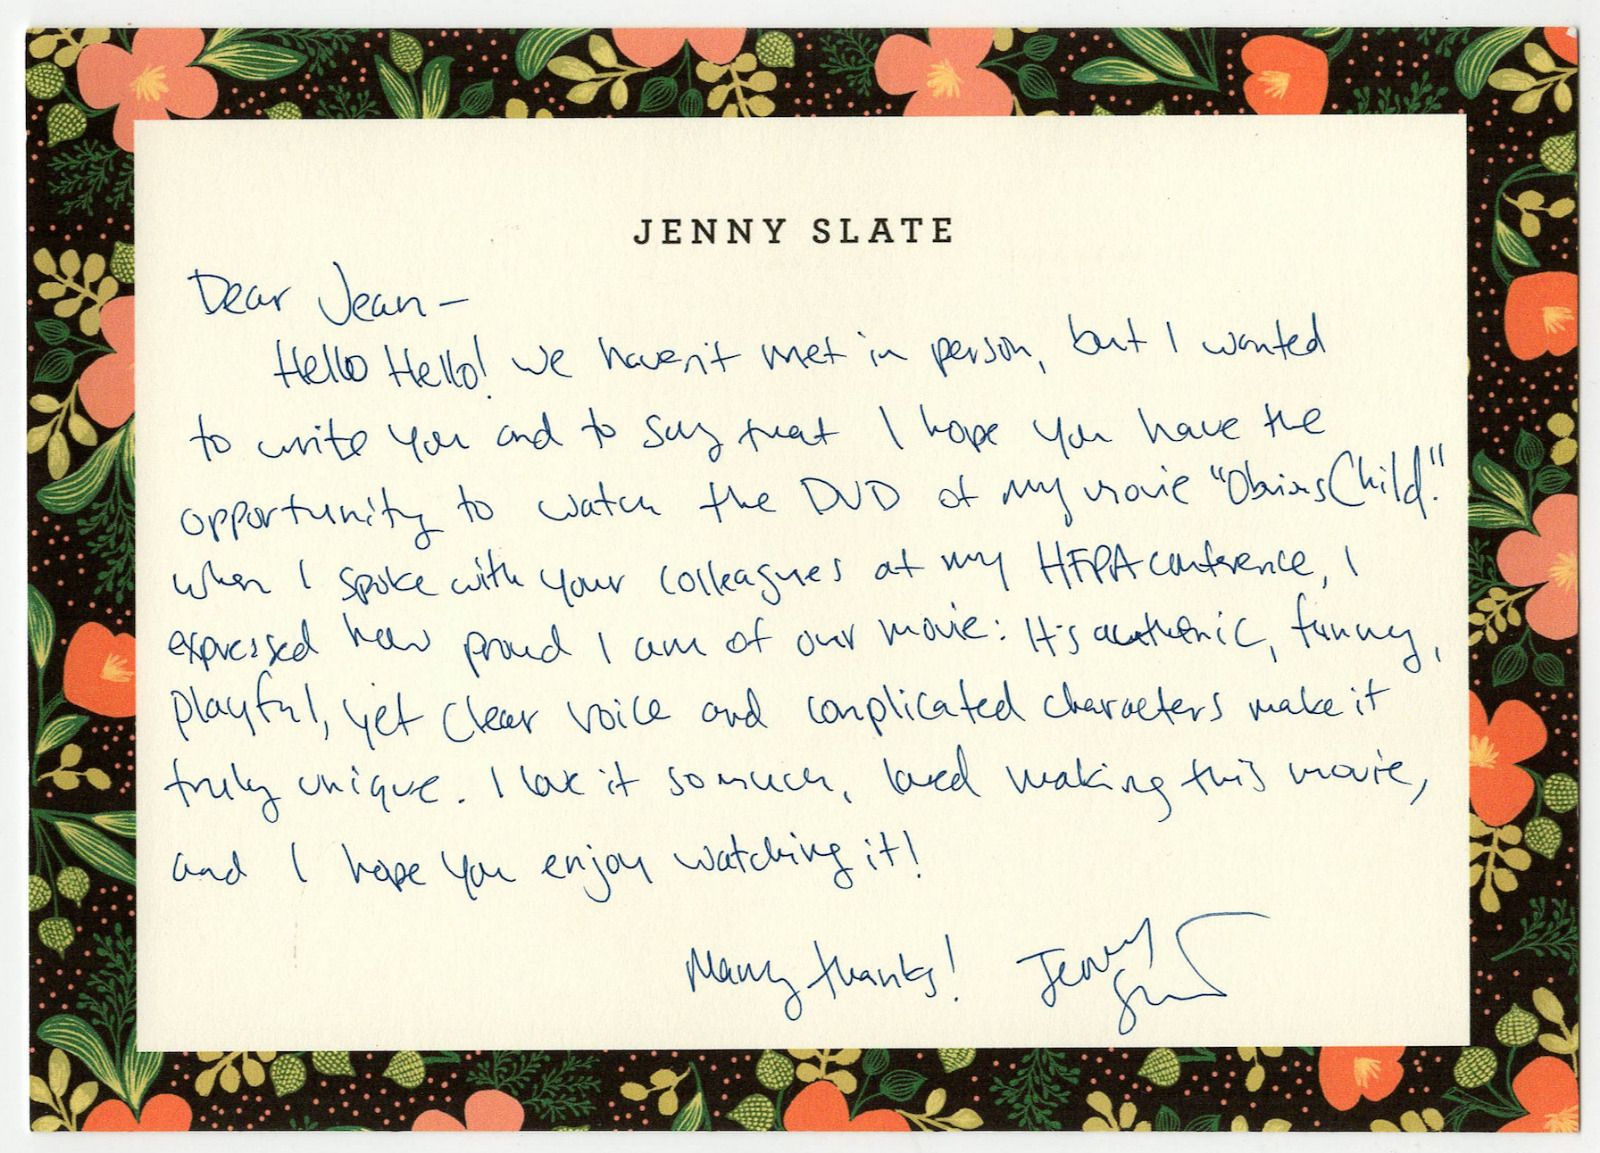 JENNY SLATE
Dear Jean—
Hello Hello! We haven't met in person, but I wanted
to write you and to say that I hope you have the
opportunity to watch the DVD of my movie "Obvious Child."
When I spoke with your colleagues at my HFPA conference, I
expressed how proud I am of our movie: It's authentic, funny,
playful, yet clear voice and complicated characters make it
truly unique. I love it so much, loved making this movie,
and I hope you enjoy watching it!
Many thanks! Jenny Slate